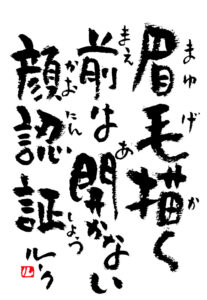 眉毛描く
まゆげか
前は開かない
まえあ
顔認証
かおにんしょう
ルーク
ル